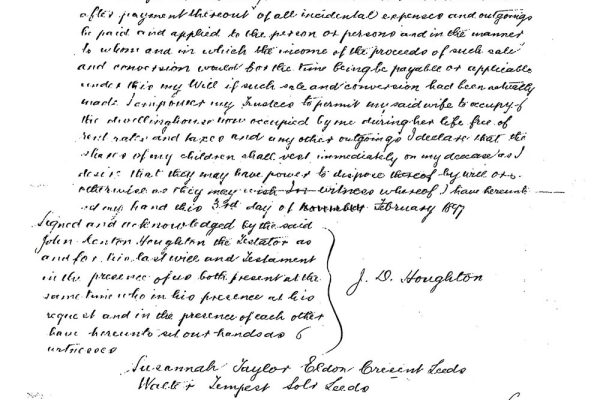 after payment thereout of all incidental expenses and outgoings
be paid and applied to the person or persons and in the manner
to whom and in which the income of the proceeds of such sale
and conversion would for the time being be payable or applicable
under this my Will if such sale and conversion had been actually
made I empower my Trustees to permit my said wife to occupy
the dwellinghouse now occupied by me during her life free of
rent rates and taxes and any other outgoings I declare that the
shares of my children shall vest immediately on my decease as I
desire that they may have power to dispose thereof by will or
otherwise as they may wish In witness whereof I have hereunto
set my hand this 3rd day of November February 1897
Signed and acknowledged by the said
John Denton Houghton the Testator as
and for his last will and Testament
in the presence of us both present at the
same time who in his presence at his
request and in the presence of each other
have hereunto set our hands as
witnesses
J. D. Houghton
Susannah Taylor Eldon Cresent Leeds
Walter Tempest Solr Leeds